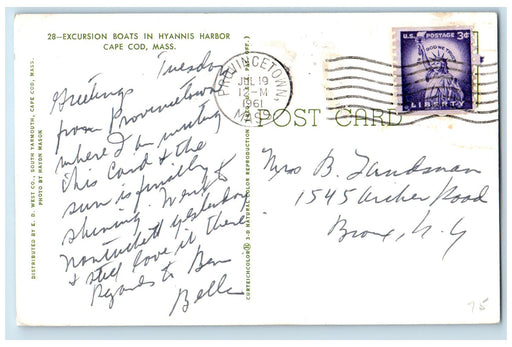 28—EXCURSION BOATS IN HYANNIS HARBOR
CAPE COD, MASS.
Tuesday
Greetings
from Provincetown
where I am writing
this Card & the
sun is finally
shining. Went to
Nantuckett yesterday
& still love it there
Regards to Ben
Belle
DISTRIBUTED BY E. D. WEST CO., SOUTH YARMOUTH, CAPE COD, MASS.
PHOTO BY MAYOR MASON
CURTEICHCOLOR® 3-D NATURAL COLOR REPRODUCTION
PROVINCETOWN,
JUL 19
1 - M
1961
MASS.
U.S. POSTAGE 3¢
IN GOD WE TRUST
LIBERTY
POST CARD
Mrs B. Landsman
1545 Archer Road
Bronx, N.Y
75